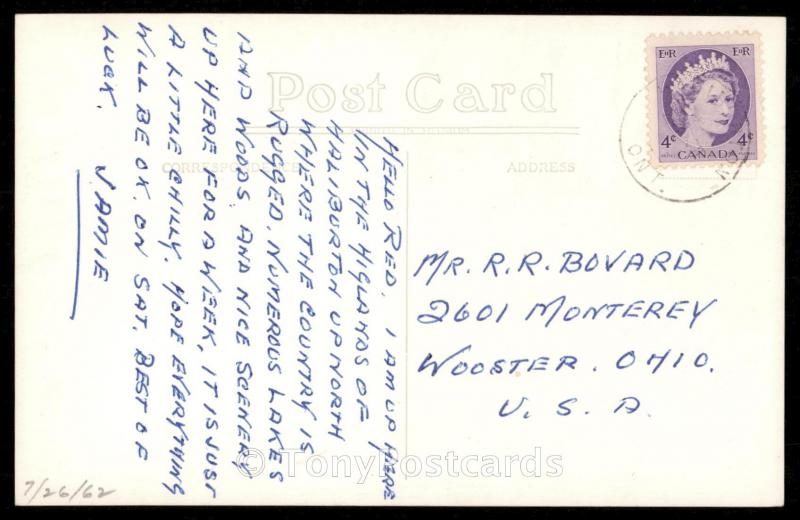 Post Card
CORRESPONDENCE
ADDRESS
HELLO RED, I AM UP HERE
IN THE HIGLANDS OF
HALIBURTON UP NORTH
WHERE THE COUNTRY IS
RUGGED, NUMEROUS LAKES
AND WOODS, AND NICE SCENERY
UP HERE FOR A WEEK, IT IS JUST
A LITTLE CHILLY. HOPE EVERYTHING
WILL BE OK. ON SAT. BEST OF
LUCK.
JAMIE
MR. R. R. BOVARD
2601 MONTEREY
WOOSTER. OHIO.
U. S. A.
EIIR EIIR
4¢ 4¢
CANADA
ONT.
7/26/62
© TonyPostcards